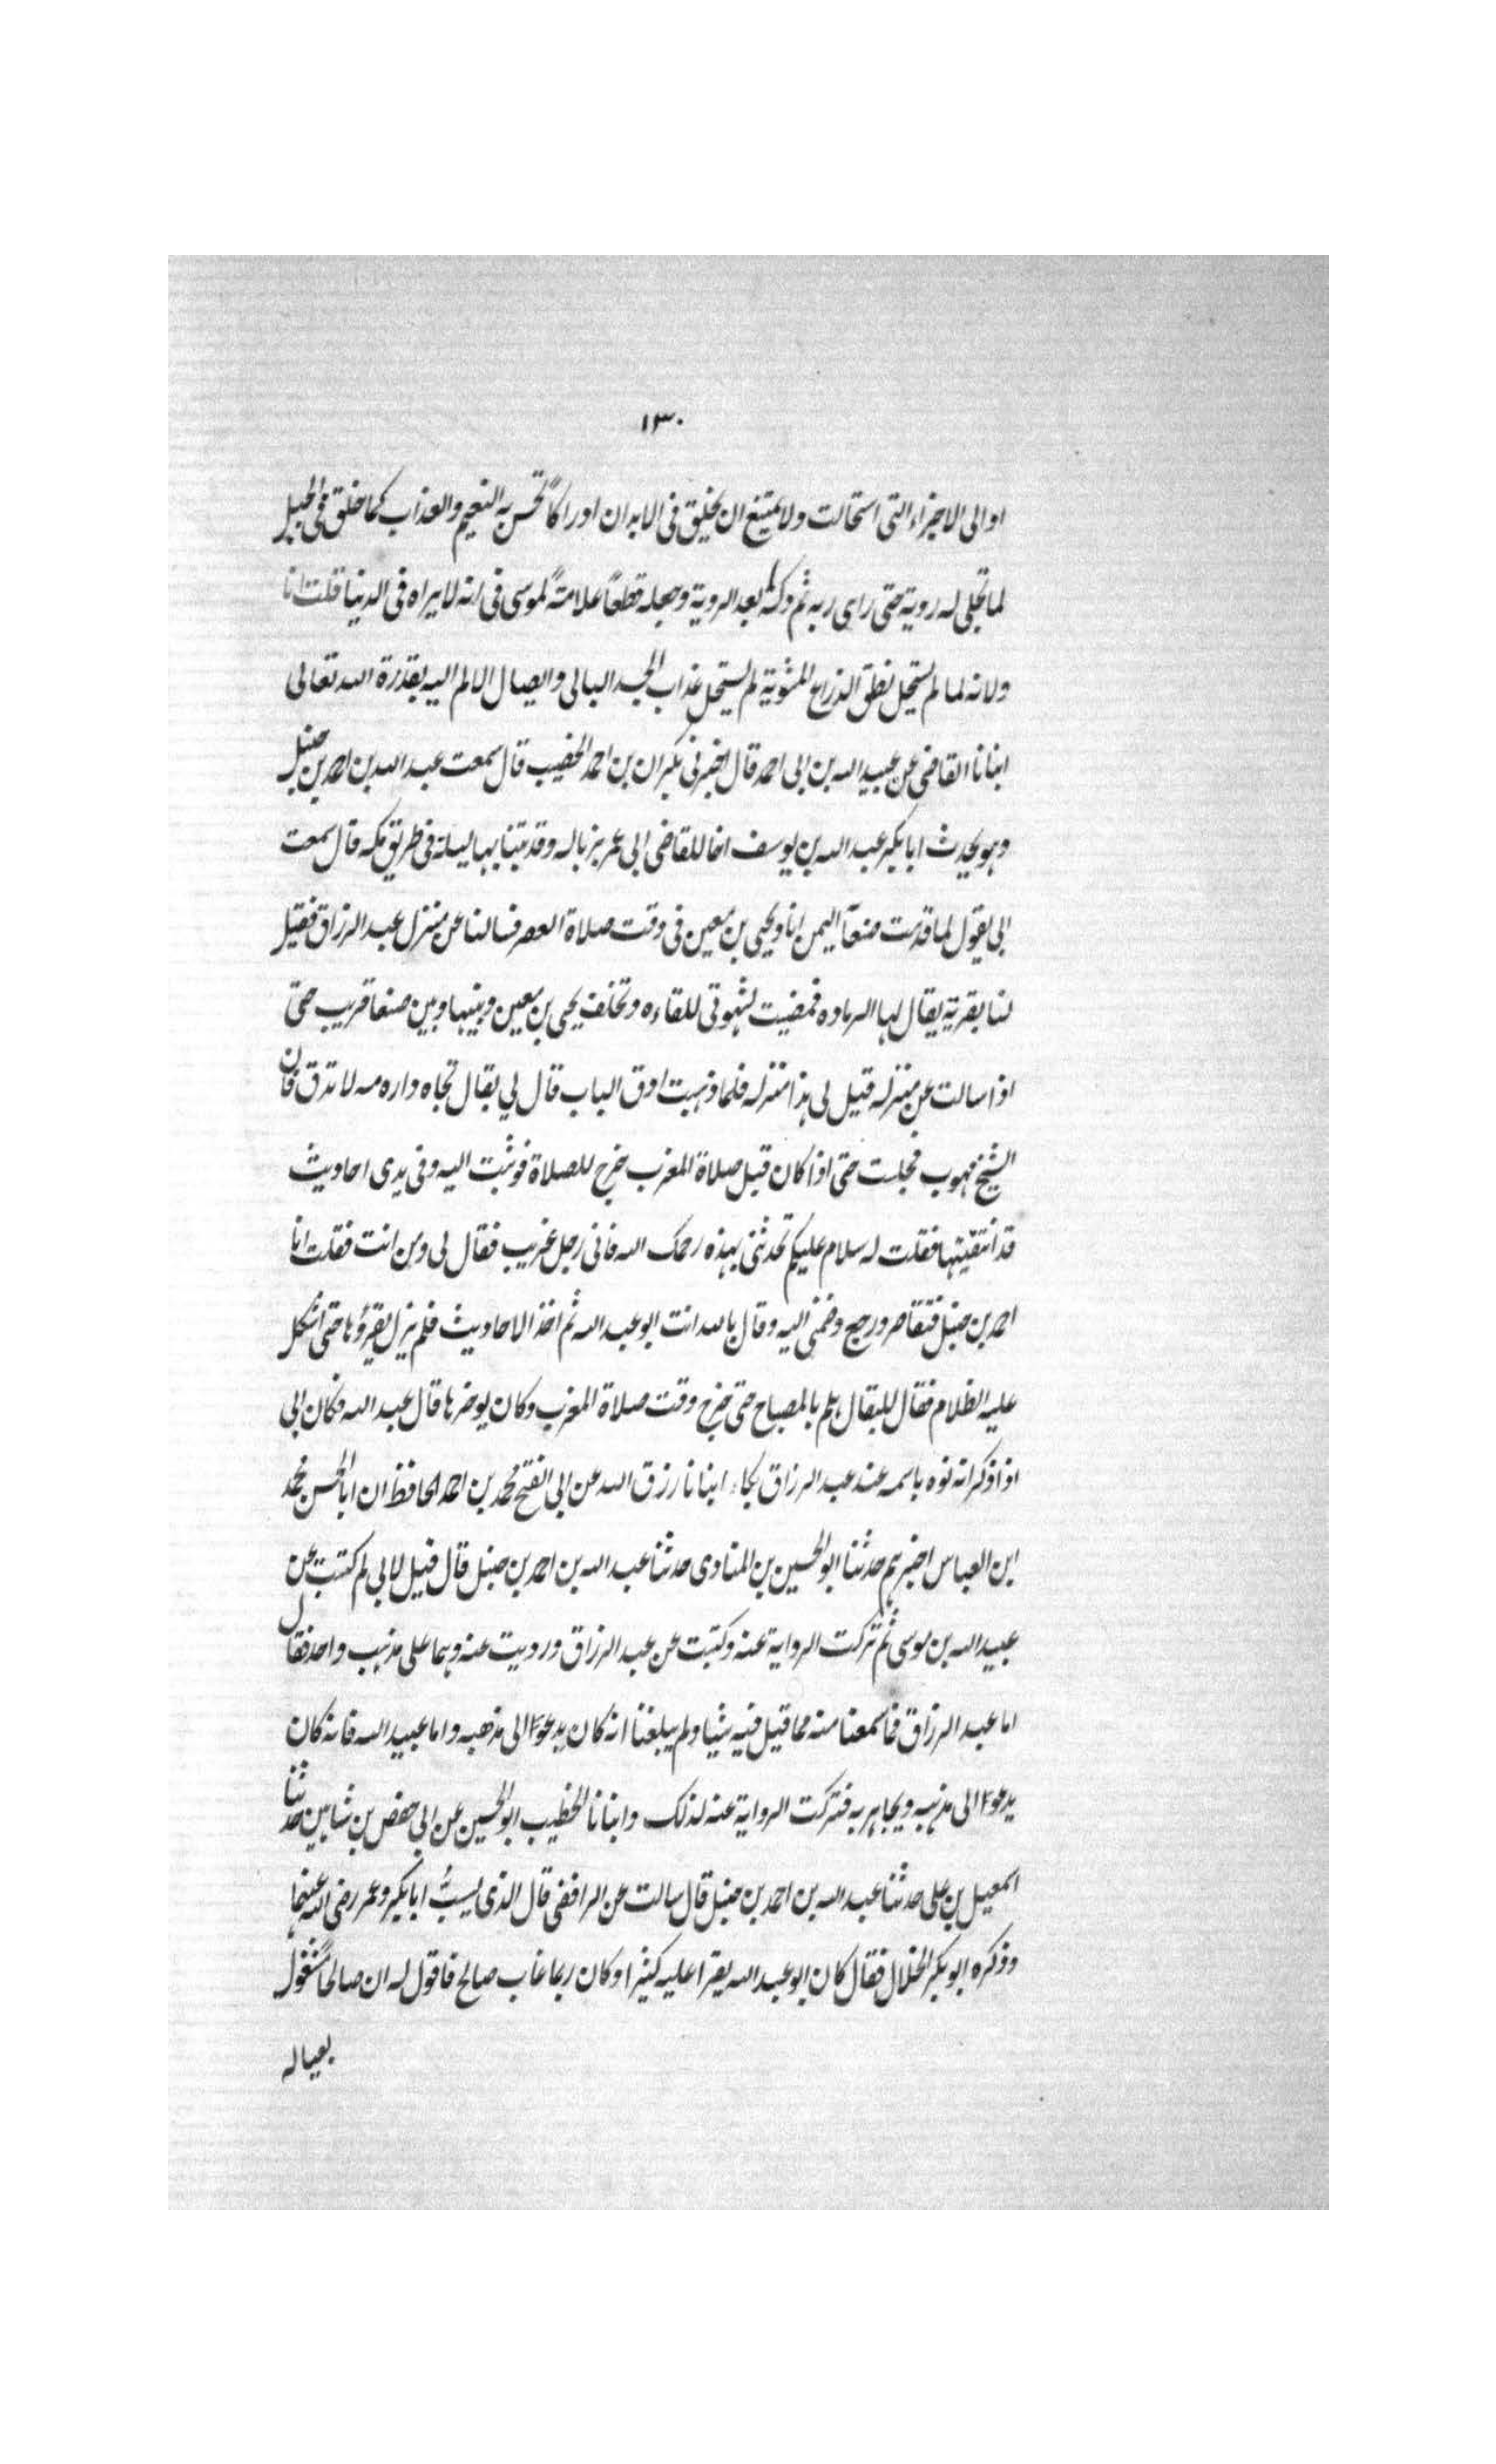 ١٣٠
او الى الاجزاء التى استحالت ولا يمتنع ان يخلق فى الابدان ادراكاً تحس به النعيم والعذاب كما خلق فى الجبل
لما تجلى له روية حتى راى ربه ثم دكه بعد الروية وجعله قطعاً علامةً لموسى فى انه لا يراه فى الدنيا قلت انا
ولانه لما لم يستحل نطق الذراع المشوية لم يستحل عذاب الجسد البالى وايصال الالم اليه بقدرة الله تعالى
انبانا القاضى عن عبيد الله بن ابى احمد قال اخبرنى بكران بن احمد الخضيب قال سمعت عبد الله بن احمد بن حنبل
وهو يحدث ابا بكر عبد الله بن يوسف اخا للقاضى ابى عمر بزباله وقد بتنا بها ليلة فى طريق مكه قال سمعت
ابى يقول لما قدمت صنعآ اليمن انا ويحيى بن معين فى وقت صلاة العصر فسالنا عن منزل عبد الرزاق فقيل
لنا بقرية يقال لها الرماده فمضيت لشهوتى للقاءه وتخلف يحيى بن معين وبينها وبين صنعا قريب حتى
اذا سالت عن منزله قيل لى هذا منزله فلما ذهبت ادق الباب قال لي بقال تجاه داره مه لا تدق فان
الشيخ مهوب فجلست حتى اذا كان قبل صلاة المغرب خرج للصلاة فوثبت اليه وفى يدى احاديث
قد انتقيتها فقلت له سلام عليكم تحدثنى بهذه رحمك الله فانى رجل غريب فقال لى ومن انت فقلت انا
احمد بن حنبل فتقاصر ورجع وضمنى اليه وقال بالله انت ابو عبد الله ثم اخذ الاحاديث فلم يزل يقرؤها حتى اشكل
عليه الظلام فقال للبقال هلم بالمصباح حتى خرج وقت صلاة المغرب وكان يوخرها قال عبد الله وكان ابى
اذا ذكر انه نوه باسمه عند عبد الرزاق بكاء انبانا رزق الله عن ابى الفتح محمد بن احمد الحافظ ان ابا الحسن محمد
ابن العباس اخبرهم حدثنا ابو الحسين بن المنادى حدثنا عبد الله بن احمد بن حنبل قال قيل لابي لم كتبت عن
عبيد الله بن موسى ثم تركت الرواية عنه وكتبت عن عبد الرزاق ورويت عنه وهما على مذهب واحد فقال
اما عبد الرزاق فما سمعنا منه مما قيل فيه شيا ولم يبلغنا انه كان يدعوا الى مذهبه واما عبيد الله فانه كان
يدعوا الى مذهبه ويجاهر به فتركت الرواية عنه لذلك وانبانا الخطيب ابو الحسين عن ابي حفص بن شاهين حدثنا
اسمعيل بن على حدثنا عبد الله بن احمد بن حنبل قال سالت عن الرافضى قال الذى يسبُّ ابا بكر وعمر رضى الله عنهما
وذكره ابو بكر الخلال فقال كان ابو عبد الله يقرا عليه كثيرا وكان ربما غاب صالح فاقول له ان صالحاً مشغول
بعياله